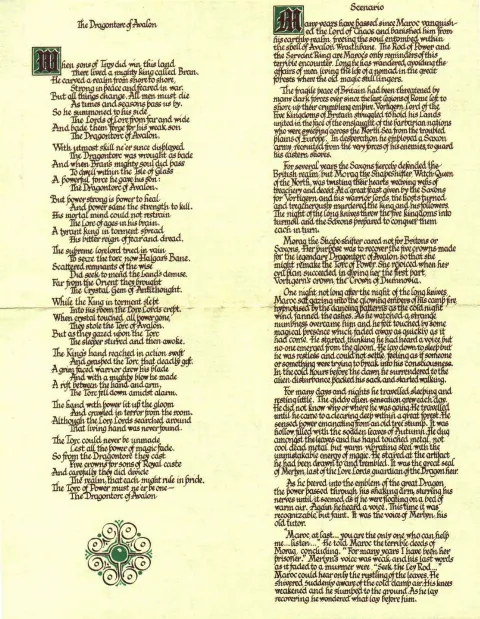 The Dragontorc of Avalon
When sons of Troy did win this land
There lived a mighty king called Bran.
He carved a realm from shore to shore,
Strong in peace and feared in war.
But all things change. All men must die
As times and seasons pass us by.
So he summoned to his side
The Lords of Lore from far and wide
And bade them forge for his weak son
The Dragontorc of Avalon.
With utmost skill ne'er since displayed
The Dragontorc was wrought as bade
And when Bran's mighty soul did pass
To dwell within the Isle of Glass
A powerful force he gave his son:
The Dragontorc of Avalon.
But power strong is power to heal
And power some the strength to kill.
His mortal mind could not restrain
The Lore of ages in his brain.
A tyrant king in torment spread
His bitter reign of fear and dread.
The supreme lorelord tried in vain
To seize the torc now Halgar's Bane.
Scattered remnants of the wise
Did seek to mend the land's demise.
Far from the Orient they brought
The Crystal Gem of Antithought.
While the King in torment slept
Into his room the Lore Lords crept.
When crystal touched all power gone,
They stole the Torc of Avalon.
But as they gazed upon the Torc
The sleeper stirred and then awoke.
The King's hand reached in action swift
And grasped the Torc that deadly gift.
A grim faced warrior drew his blade
And with a mighty blow he made
A rift between the hand and arm,
The Torc fell down amidst alarm.
The hand with power lit up the gloom
And crawled in terror from the room.
Although the Lore Lords searched around
That living hand was never found.
The Torc could never be unmade
Lest all the power of magic fade.
So from the Dragontorc they cast
Five crowns for sons of Royal caste
And carefully they did divide
The realm, that each might rule in pride.
The Torc of Power must ne'er be one—
The Dragontorc of Avalon
Scenario
Many years have passed since Maroc vanquish-
ed the Lord of Chaos and banished him from
his earthly realm, freeing the soul entombed within
the spell of Avalon Wraithbane. The Rod of Power and
the Servant Ring are Maroc's only reminders of this
terrible encounter. Long he has wandered, avoiding the
affairs of men, living the life of a nomad in the great
forests where the old magic still lingers.
The fragile peace of Britain had been threatened by
many dark forces ever since the last legions of Rome left to
shore up their crumbling empire. Vortigern, Lord of the
Five Kingdoms of Britain struggled to hold his Lands
united in the face of the onslaught of the barbarian nations
who were sweeping across the North Sea from the troubled
plains of Europe. In desperation he employed a Saxon
army, recruited from the very forces of his enemies, to guard
his eastern shores.
For several years the Saxons fiercely defended the
British realm, but Morag the Shapeshifter, Witch-Queen
of the North, was twisting their hearts weaving webs of
treachery and deceit. At a great feast given by the Saxons
for Vortigern and his warrior lords, the hosts turned
and traitorously murdered the king and his followers.
The night of the long knives threw the five kingdoms into
turmoil and the Saxons prepared to conquer them
each in turn.
Morag the Shape-shifter cared not for Britons or
Saxons. Her purpose was to recover the five crowns made
for the legendary Dragontorc of Avalon so that she
might remake the Torc of Power. She rejoiced when her
evil plan succeeded in giving her the first part,
Vortigern's crown, the Crown of Dumnovia.
One night not long after the night of the long knives,
Maroc sat gazing into the glowing embers of his camp fire,
hypnotised by the dancing patterns as the cold night
wind fanned the ashes. As he watched, a strange
numbness overcame him and he felt touched by some
magical presence which faded away as quickly as it
had come. He started, thinking he had heard a voice but
no-one emerged from the gloom. He lay down to sleep but
he was restless and could not settle, feeling as if someone
or something were trying to break into his consciousness.
In the cold hours before the dawn he surrendered to the
alien disturbance, packed his sack and started walking.
For many days and nights he travelled sleeping and
resting little. The giddy alien sensation grew each day.
He did not know why or where he was going. He travelled
until he came to a clearing deep within a great forest. He
sensed power emanating from an old tree stump. It was
hollow, filled with the sodden leaves of Autumn. He dug
amongst the leaves and his hand touched metal, not
cool dead metal but warm vibrating steel with the
unmistakable energy of magic. He stared at the artifact
he had been drawn to and trembled. It was the great seal
of Merlyn, last of the Lore Lords, guardian of the Dragon heir.
As he peered into the emblem of the great Dragon
the power passed through his shaking arm, stirring his
nerves until it seemed as if he were floating on a bed of
warm air. Again he heard a voice. This time it was
recognizable, but faint. It was the voice of Merlyn, his
old tutor.
"Maroc, at last... you are the only one who can help
me... listen..." He told Maroc the terrible deeds of
Morag, concluding, "For many years I have been her
prisoner." Merlyn's voice was weak and his last words
as it faded to a murmer were, "Seek the Ley Rod..."
Maroc could hear only the rustling of the leaves. He
shivered, suddenly aware of the cold damp air. His knees
weakened and he slumped to the ground. As he lay
recovering he wondered what lay before him.